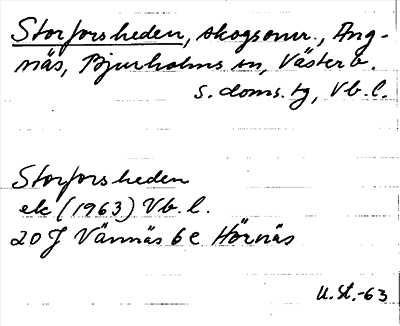 Storforsheden, skogsomr., Ång-
näs, Bjurholms sn, Västerb.
s. doms. tg, Vb. l.
Storforsheden
ek (1963) Vb. l.
20 J Vännäs 6 e Hörnäs
U. St. -63